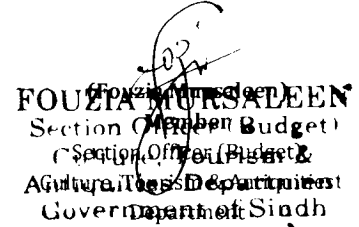 (Fouzia Mursaleen)
FOUZIA MURSALEEN
Member
Section Officer (Budget)
Section Officer (Budget)
Culture, Tourism &
Culture, Tourism & Antiquities
Antiquities Department
Department
Government of Sindh